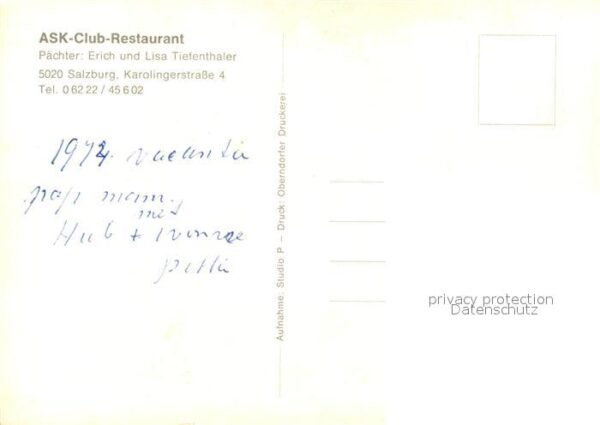 ASK-Club-Restaurant
Pächter: Erich und Lisa Tiefenthaler
5020 Salzburg, Karolingerstraße 4
Tel. 0 62 22 / 45 6 02
vacantie
papi mam
met
Hub +
Aufnahme: Studio P – Druck: Oberndorfer Druckerei
privacy protection
Datenschutz